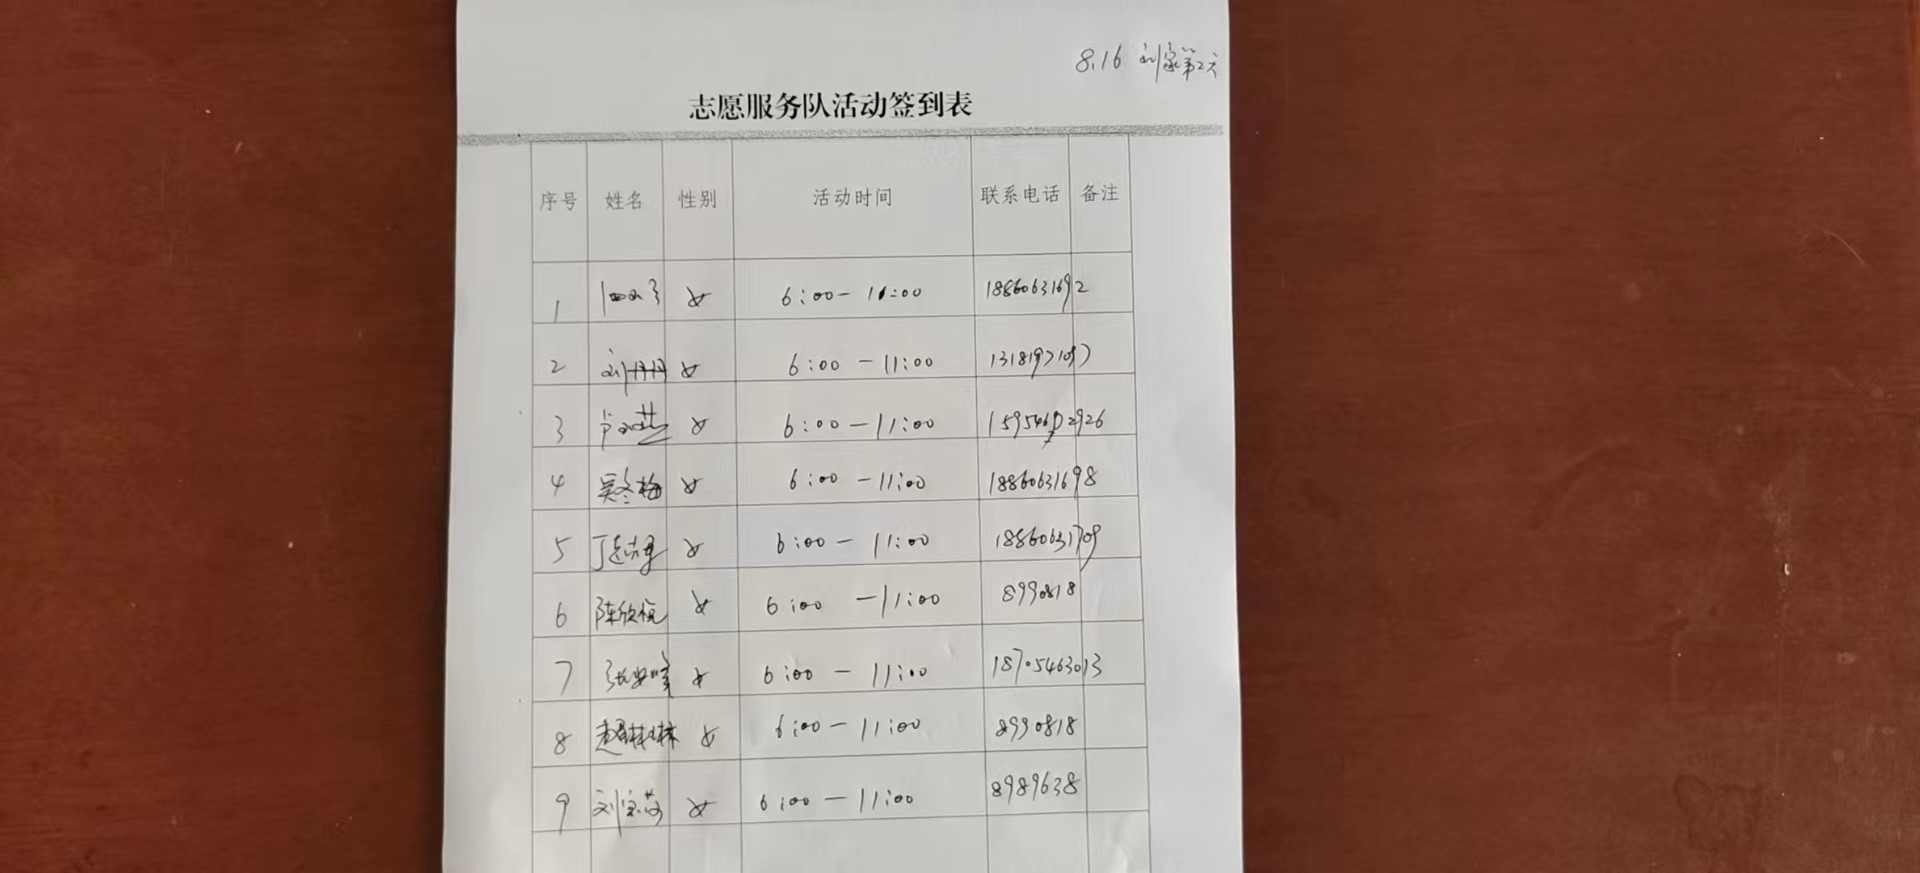 8.16 刘家第2天
志愿服务队活动签到表
序号 姓名 性别 活动时间 联系电话 备注
1 女 6:00-11:00 18860631692
2 刘丹丹 女 6:00-11:00
3 女 6:00-11:00
4 吴冬梅 女 6:00-11:00 18860631698
5 女 6:00-11:00 18860631709
6 陈欣悦 女 6:00-11:00 8990818
7 女 6:00-11:00 18705463013
8 赵琳琳 女 6:00-11:00 8990818
9 女 6:00-11:00 8989638